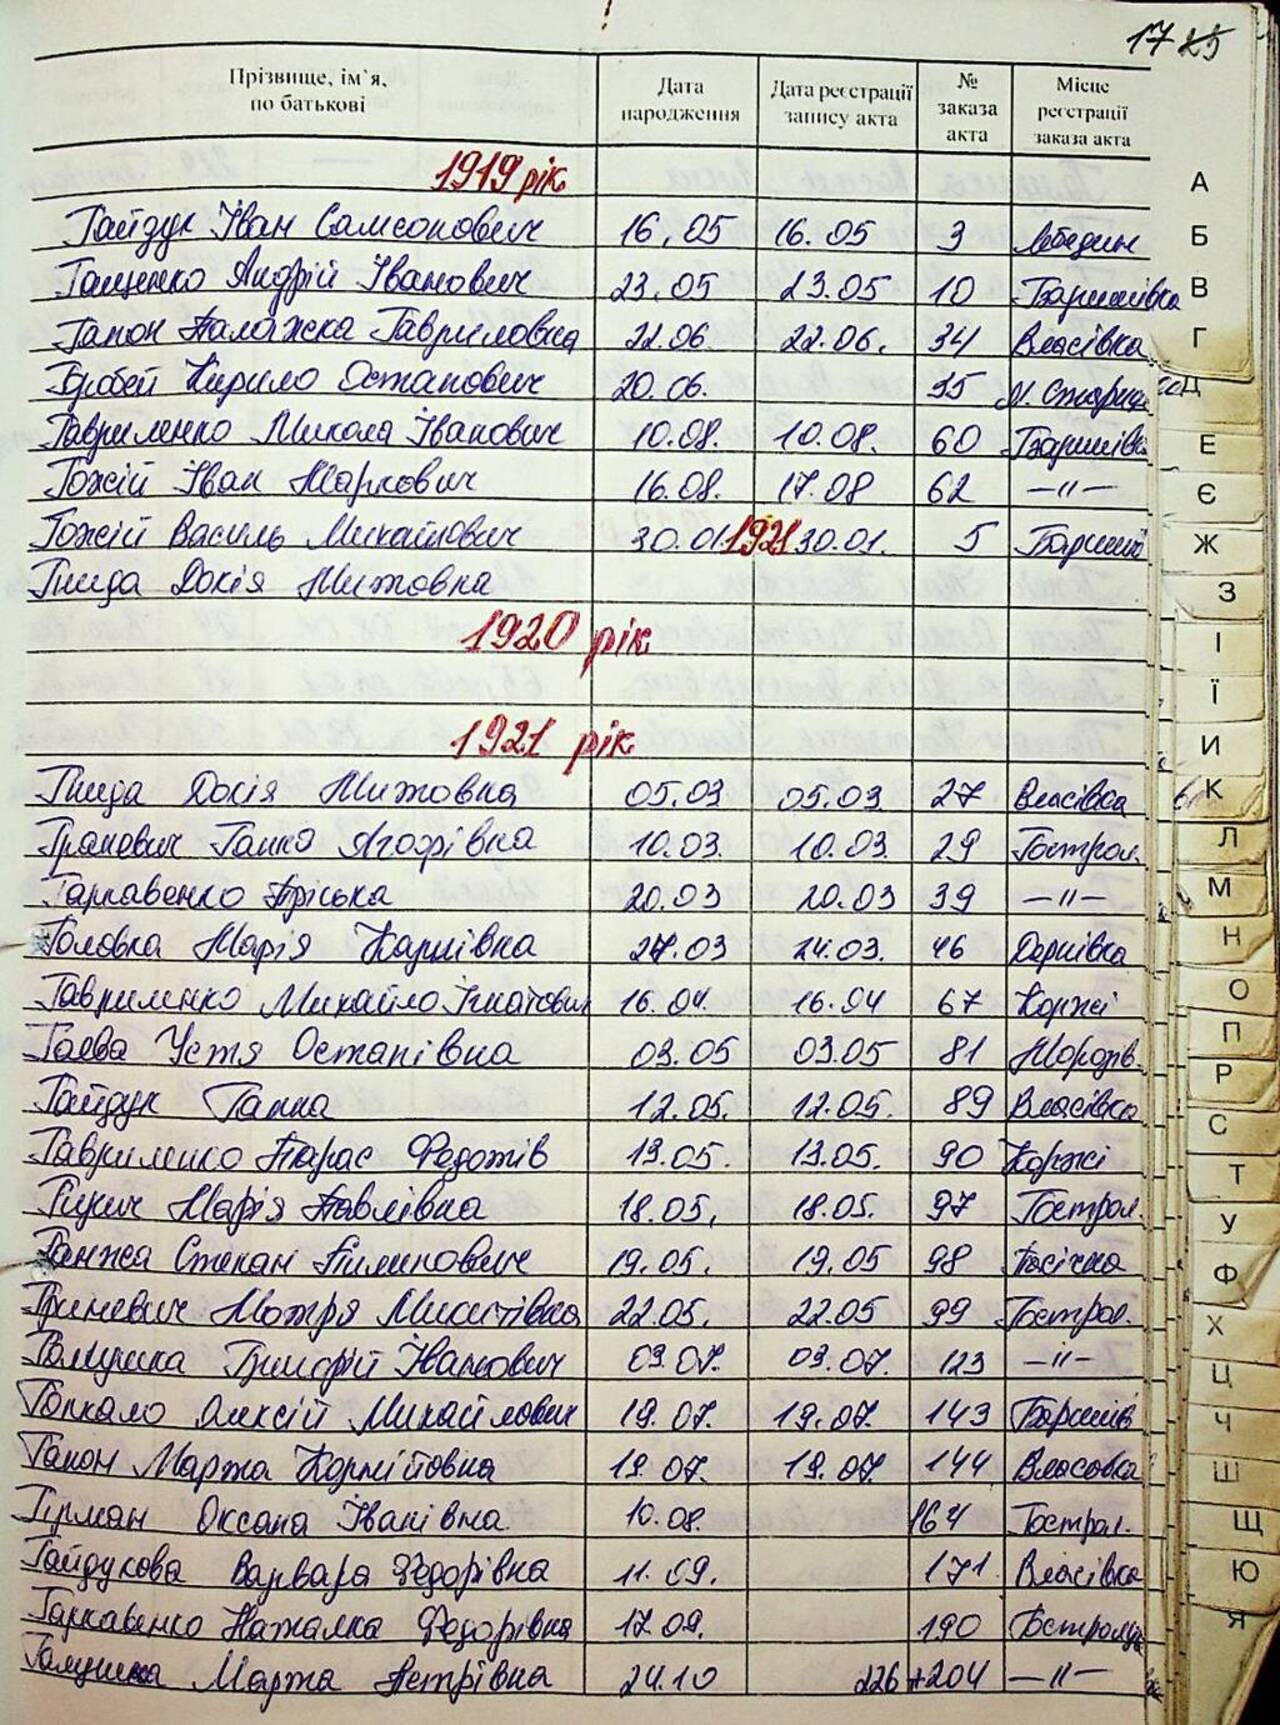 17 25
Прізвище, ім`я, по батькові Дата народження Дата реєстрації запису акта № заказа акта Місце реєстрації заказа акта
1919 рік
Гайдук Іван Самсонович 16.05 16.05 3 Лебедин
Гащенко Андрій Іванович 23.05 23.05 10 Баришівка
Гапон Палажка Гавриловна 22.06. 22.06. 34 Власівка
Кирило Остапович 20.06. 35
Гавриленко Микола Іванович 10.08. 10.08. 60 Баришівка
Гожій Іван Маркович 16.08. 17.08 62 —"—
Гожій Василь Михайлович 30.01 1921 30.01. 5 Бариші
Гнида Докія Митовна
1920 рік
1921 рік
Гнида Докія Митовна 05.03 05.03 27 Власівка
Ганна 10.03. 10.03. 29 Гострол.
Гаркавенко Пріська 20.03 20.03 39 —"—
Головка Марія Карпівна 24.03 46 Дернівка
Гавриленко Михайло Ігнатович 16.04. 16.04 67 Коржі
Гаєва Устя Остапівна 03.05 03.05 81
Гайдук Ганна 12.05. 12.05. 89 Власівка
Гавриленко Тарас Федотів 13.05. 13.05. 90 Коржі
Марія Павлівна 18.05. 18.05. 97 Гострол.
Ганжа Степан Пилипович 19.05. 19.05 98 Пасічна
Гриневич Мотря Микитівна 22.05. 22.05 99 Гострол.
Галушка Григорій Іванович 03.07. 03.07. 123 —"—
Гопкало Олексій Михайлович 19.07. 19.07. 143 Баришів
Гапон Марта Корнійовна 19.07. 19.07. 144 Власовка
Гірман Оксана Іванівна 10.08. 164 Гострол.
Гайдукова Варвара Федорівна 11.09. 171 Власівка
Гаркавенко Наталка Федорівна 17.09. 190
Галушка Марта Петрівна 24.10 226 204 —"—
А
Б
В
Г
Д
Е
Є
Ж
З
І
Ї
И
К
Л
М
Н
О
П
Р
С
Т
У
Ф
Х
Ц
Ч
Ш
Щ
Ю
Я